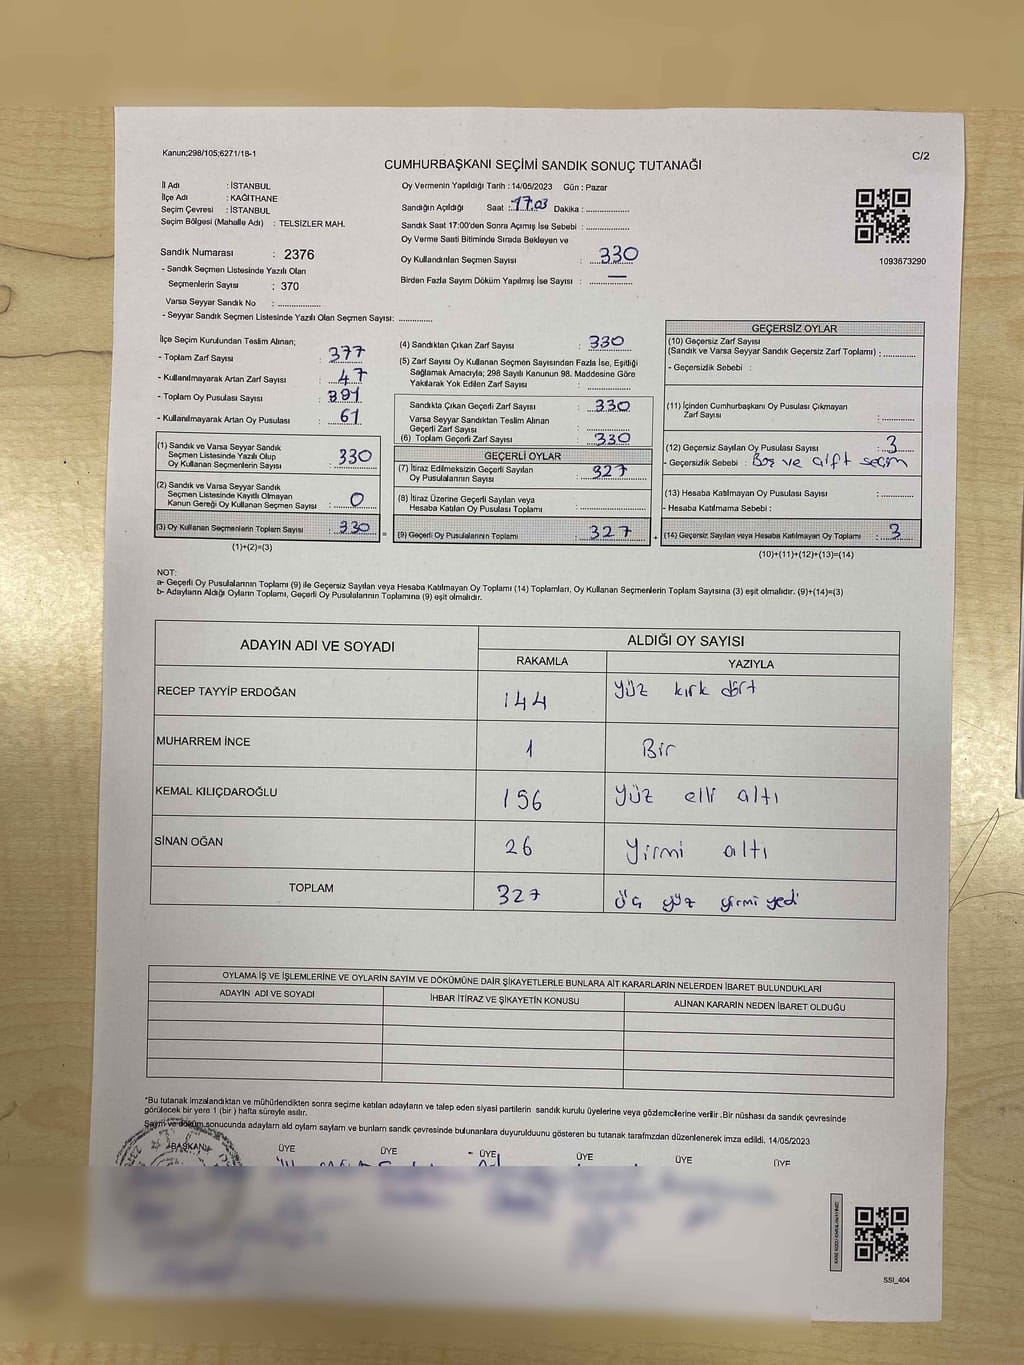 Kanun;298/105;6271/18-1
C/2
CUMHURBAŞKANI SEÇİMİ SANDIK SONUÇ TUTANAĞI
İl Adı : İSTANBUL
İlçe Adı : KAĞITHANE
Seçim Çevresi : İSTANBUL
Seçim Bölgesi (Mahalle Adı) : TELSİZLER MAH.
Sandık Numarası : 2376
- Sandık Seçmen Listesinde Yazılı Olan
Seçmenlerin Sayısı : 370
Varsa Seyyar Sandık No : ..................
- Seyyar Sandık Seçmen Listesinde Yazılı Olan Seçmen Sayısı: ..............
Oy Vermenin Yapıldığı Tarih : 14/05/2023 Gün : Pazar
Sandığın Açıldığı Saat : 17.03 Dakika : ..................
Sandık Saat 17:00'den Sonra Açımış İse Sebebi : ..................
Oy Verme Saati Bitiminde Sırada Bekleyen ve
Oy Kullandırılan Seçmen Sayısı : 330
Birden Fazla Sayım Döküm Yapılmış İse Sayısı : —
1093673290
İlçe Seçim Kurulundan Teslim Alınan;
- Toplam Zarf Sayısı : 377
- Kullanılmayarak Artan Zarf Sayısı : 47
- Toplam Oy Pusulası Sayısı : 391
- Kullanılmayarak Artan Oy Pusulası : 61
(1) Sandık ve Varsa Seyyar Sandık
Seçmen Listesinde Yazılı Olup
Oy Kullanan Seçmenlerin Sayısı : 330
(2) Sandık ve Varsa Seyyar Sandık
Seçmen Listesinde Kayıtlı Olmayan
Kanun Gereği Oy Kullanan Seçmen Sayısı : 0
(3) Oy Kullanan Seçmenlerin Toplam Sayısı : 330
(1)+(2)=(3)
=
(4) Sandıktan Çıkan Zarf Sayısı : 330
(5) Zarf Sayısı Oy Kullanan Seçmen Sayısından Fazla İse, Eşitliği
Sağlamak Amacıyla; 298 Sayılı Kanunun 98. Maddesine Göre
Yakılarak Yok Edilen Zarf Sayısı : ..................
Sandıkta Çıkan Geçerli Zarf Sayısı : 330
Varsa Seyyar Sandıktan Teslim Alınan
Geçerli Zarf Sayısı : ..................
(6) Toplam Geçerli Zarf Sayısı : 330
GEÇERLİ OYLAR
(7) İtiraz Edilmeksizin Geçerli Sayılan
Oy Pusulalarının Sayısı : 327
(8) İtiraz Üzerine Geçerli Sayılan veya
Hesaba Katılan Oy Pusulası Toplamı : ..................
(9) Geçerli Oy Pusulalarının Toplamı : 327
+
GEÇERSİZ OYLAR
(10) Geçersiz Zarf Sayısı
(Sandık ve Varsa Seyyar Sandık Geçersiz Zarf Toplamı) : ..............
- Geçersizlik Sebebi :
(11) İçinden Cumhurbaşkanı Oy Pusulası Çıkmayan
Zarf Sayısı : ..............
(12) Geçersiz Sayılan Oy Pusulası Sayısı : 3
- Geçersizlik Sebebi : Boş ve çift seçim
(13) Hesaba Katılmayan Oy Pusulası Sayısı : ..............
- Hesaba Katılmama Sebebi :
(14) Geçersiz Sayılan veya Hesaba Katılmayan Oy Toplamı : 3
(10)+(11)+(12)+(13)=(14)
NOT:
a- Geçerli Oy Pusulalarının Toplamı (9) ile Geçersiz Sayılan veya Hesaba Katılmayan Oy Toplamı (14) Toplamları, Oy Kullanan Seçmenlerin Toplam Sayısına (3) eşit olmalıdır. (9)+(14)=(3)
b- Adayların Aldığı Oyların Toplamı, Geçerli Oy Pusulalarının Toplamına (9) eşit olmalıdır.
ADAYIN ADI VE SOYADI ALDIĞI OY SAYISI
RAKAMLA YAZIYLA
RECEP TAYYİP ERDOĞAN 144 Yüz kırk dört
MUHARREM İNCE 1 Bir
KEMAL KILIÇDAROĞLU 156 Yüz elli altı
SİNAN OĞAN 26 Yirmi altı
TOPLAM 327 Üç yüz yirmi yedi
OYLAMA İŞ VE İŞLEMLERİNE VE OYLARIN SAYIM VE DÖKÜMÜNE DAİR ŞİKAYETLERLE BUNLARA AİT KARARLARIN NELERDEN İBARET BULUNDUKLARI
ADAYIN ADI VE SOYADI İHBAR İTİRAZ VE ŞİKAYETİN KONUSU ALINAN KARARIN NEDEN İBARET OLDUĞU
*Bu tutanak imzalandıktan ve mühürlendikten sonra seçime katılan adayların ve talep eden siyasi partilerin sandık kurulu üyelerine veya gözlemcilerine verilir .Bir nüshası da sandık çevresinde
görülecek bir yere 1 (bir ) hafta süreyle asılır.
Sayım ve döküm sonucunda adayların ald oyların sayların ve bunların sandk çevresinde bulunanlara duyurulduunu gösteren bu tutanak tarafmzdan düzenlenerek imza edildi. 14/05/2023
BAŞKAN ÜYE ÜYE ÜYE ÜYE ÜYE ÜYE
SSI_404